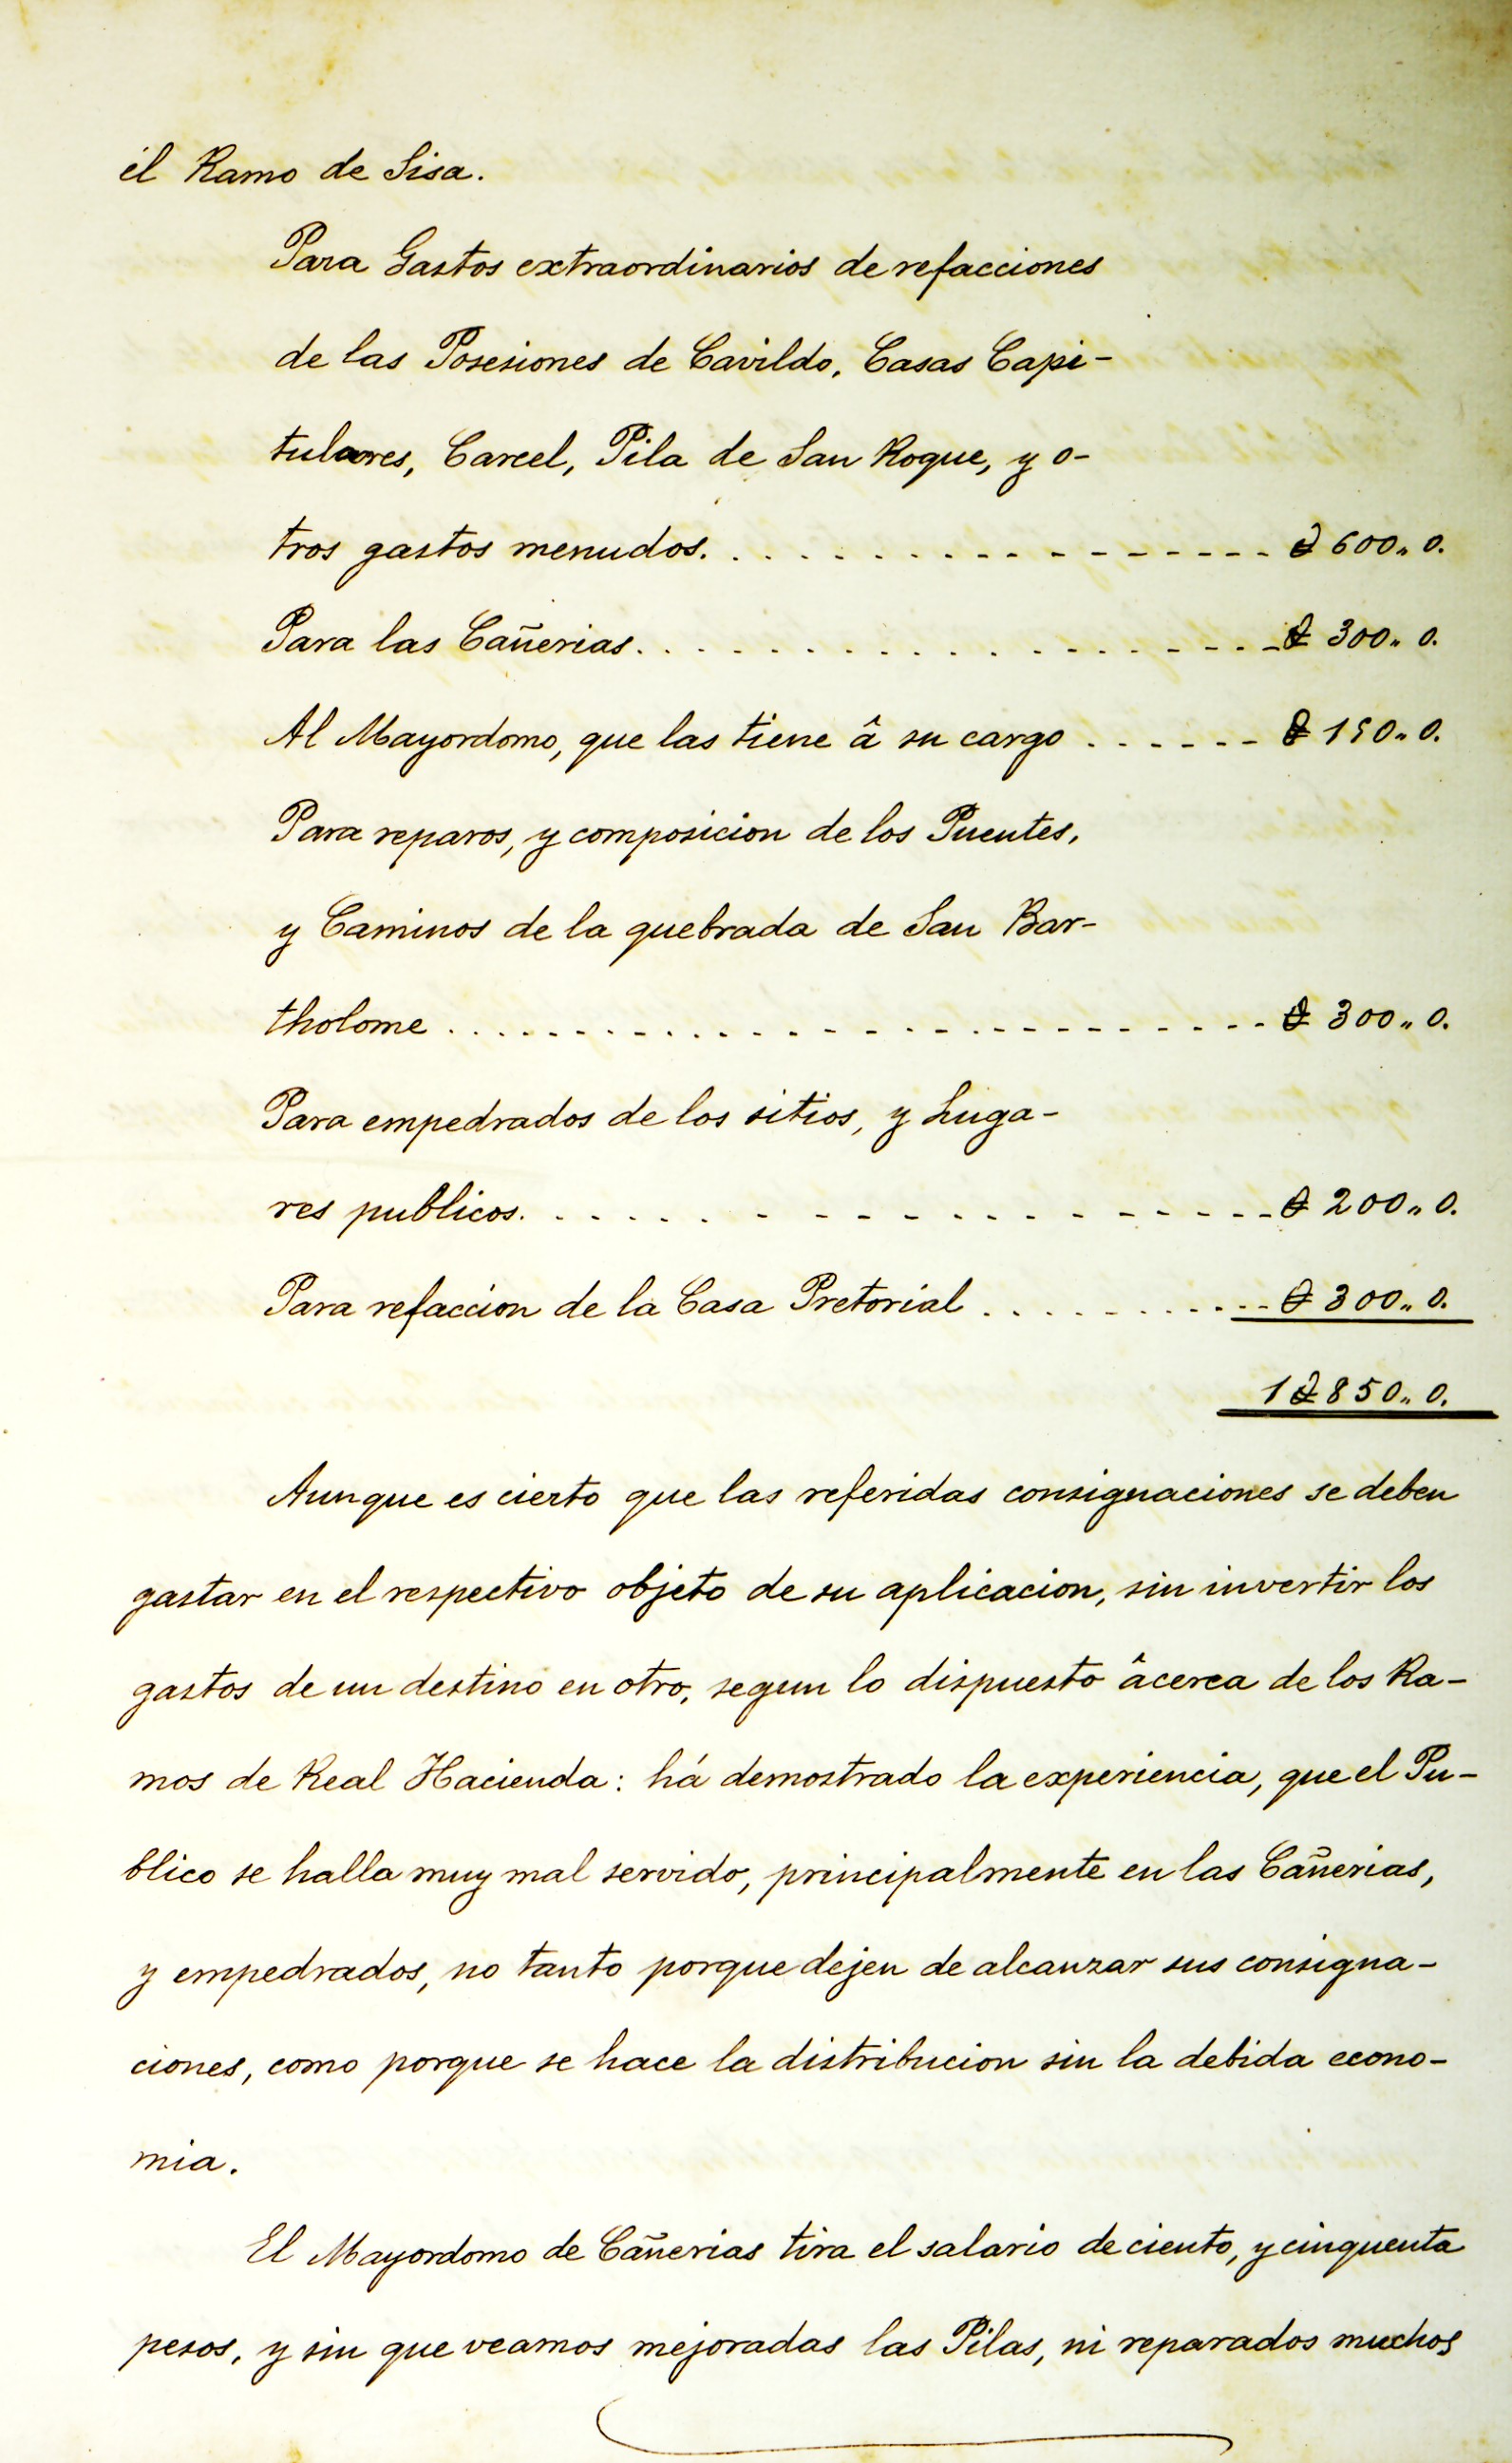 el Ramo de Sisa.
Para Gastos extraordinarios de refacciones
de las Posesiones de Cavildo, Casas Capi-
tulares, Carcel, Pila de San Roque, y o-
tros gastos menudos. . . . . . . . . . . . . . . . . . 600,, 0.
Para las Cañerias. . . . . . . . . . . . . . . . . . . . 300,, 0.
Al Mayordomo, que las tiene â su cargo . . . . . . 150,, 0.
Para reparos, y composicion de los Puentes,
y Caminos de la quebrada de San Bar-
tholome . . . . . . . . . . . . . . . . . . . . . . . . . 300,, 0.
Para empedrados de los sitios, y Luga-
res publicos. . . . . . . . . . . . . . . . . . . . . . 200,, 0.
Para refaccion de la Casa Pretorial . . . . . . . . . . 300,, 0.
1 850,, 0.
Aunque es cierto que las referidas consignaciones se deben
gastar en el respectivo objeto de su aplicacion, sin invertir los
gastos de un destino en otro, segun lo dispuesto âcerca de los Ra-
mos de Real Hacienda: há demostrado la experiencia, que el Pu-
blico se halla muy mal servido, principalmente en las Cañerias,
y empedrados, no tanto porque dejen de alcanzar sus consigna-
ciones, como porque se hace la distribucion sin la debida econo-
mia.
El Mayordomo de Cañerias tira el salario de ciento, y cinquenta
pesos, y sin que veamos mejoradas las Pilas, ni reparados muchos